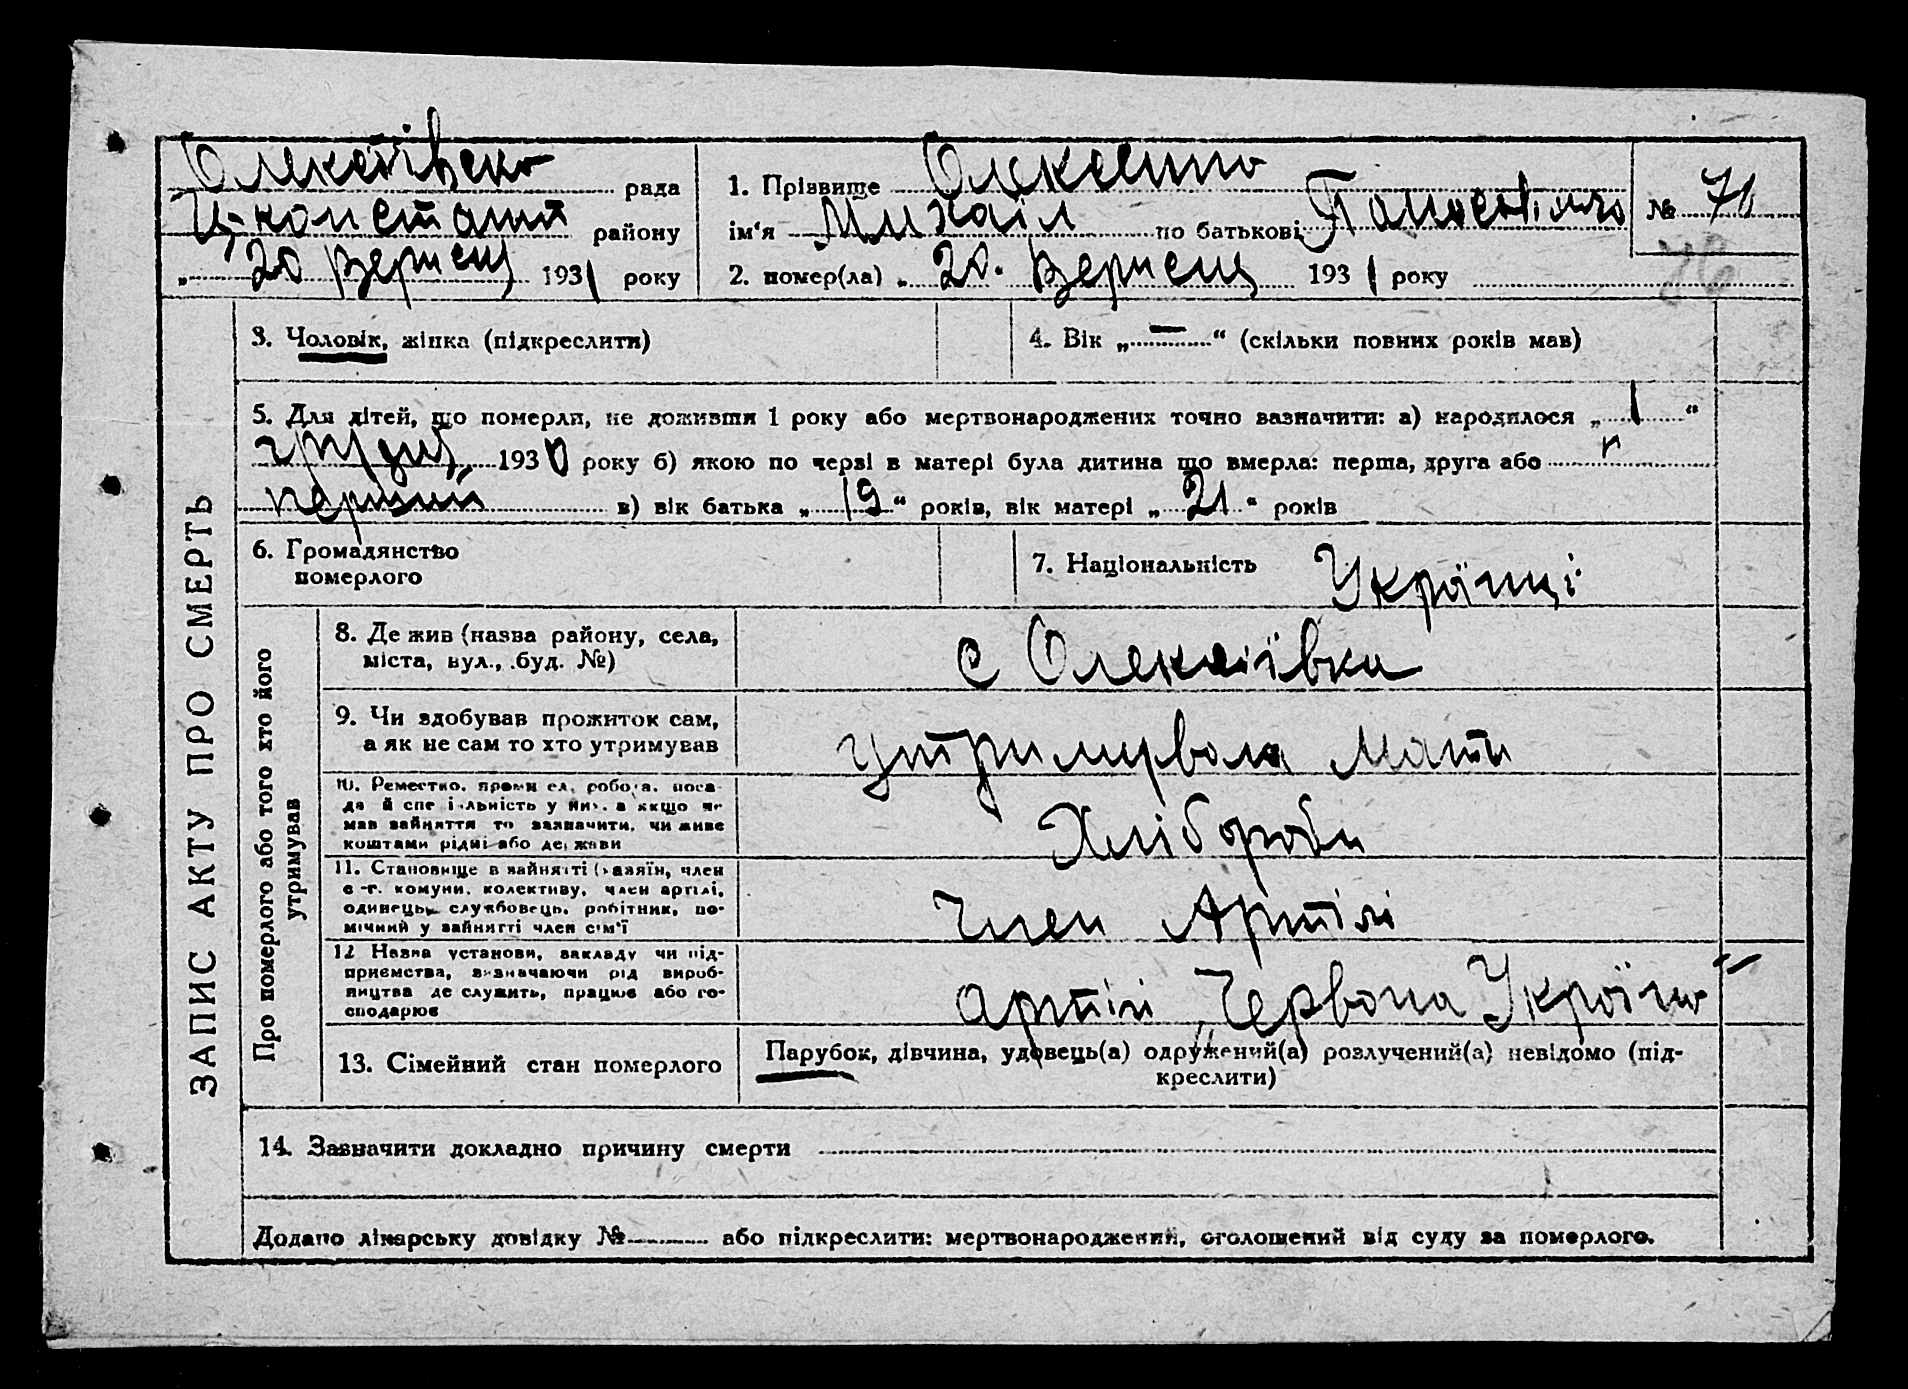 Олексіївсько рада
Ц-констант району
„ 20 Вересц 1931 року
1. Прізвище Олексенко
ім'я Михаіл по батькові
2. помер(ла) „ 20. Вересц 1931 року
№ 70
76
ЗАПИС АКТУ ПРО СМЕРТЬ
3. Чоловік, жінка (підкреслити)
4. Вік „ — “ (скільки повних років мав)
5. Для дітей, що померли, не доживши 1 року або мертвонароджених точно зазначити: а) народилося „ 1 “
грудц 1930 року б) якою по черзі в матері була дитина що вмерла: перша, друга або
першій в) вік батька „ 19 “ років, вік матері „ 21 “ років
6. Громадянство
померлого
7. Національність Україпці
Про померлого або того хто його
утримував
8. Де жив (назва району, села,
міста, вул., буд. №)
с Олексіівка
9. Чи здобував прожиток сам,
а як не сам то хто утримував
утримувала Мати
10. Ремество, промисел, робота, поса-
да й спеціяльність у них, а якщо не
мав зайняття то зазначити, чи живе
коштами рідні або держави
Хлібороби
11. Становище в зайнятті (хазяїн, член
с.-г. комуни, колективу, член артілі,
одинець, службовець, робітник, по-
мічний у зайнятті член сім'ї
Член Артілі
12 Назва установи, закладу чи під-
приємства, визначаючи рід вироб-
ництва де служить, працює або го-
сподарює
артілі „Червона Україна“
13. Сімейний стан померлого
Парубок, дівчина, удовець(а) одружений(а) розлучений(а) невідомо (під-
креслити)
14. Зазначити докладно причину смерти
Додано лікарську довідку № або підкреслити: мертвонароджений, оголошений від суду за померлого.